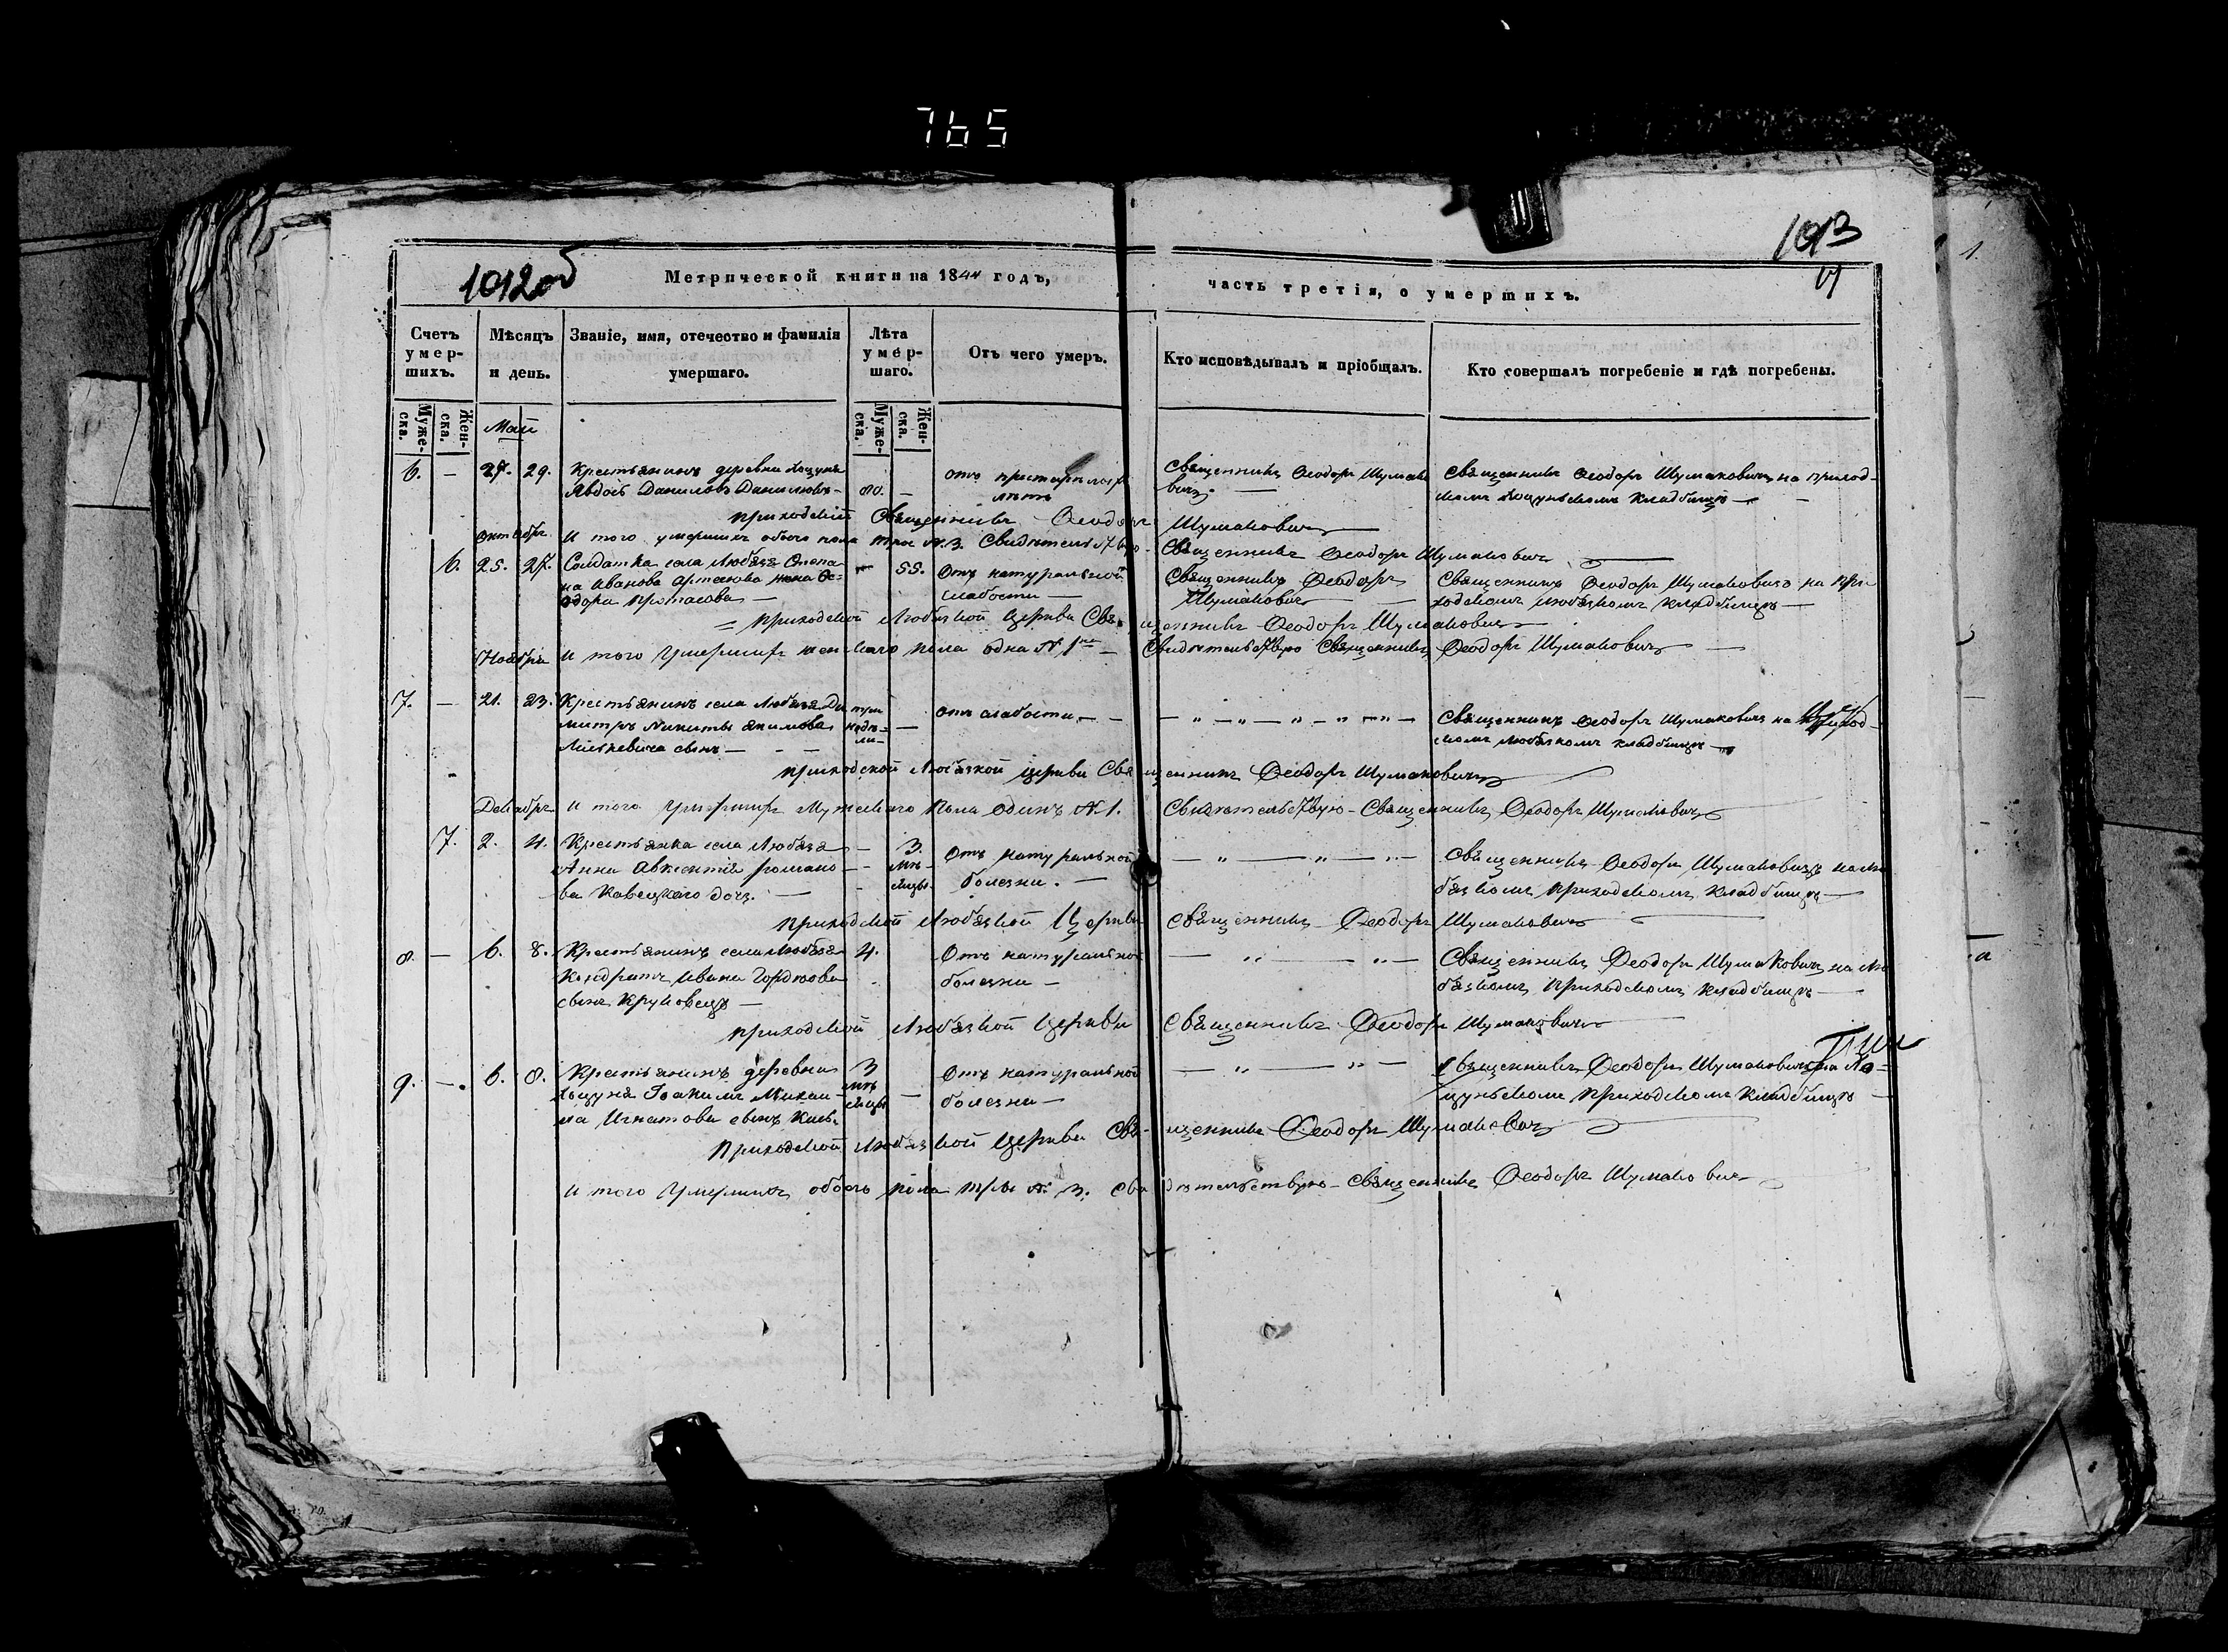 765
1013
1012 об
Метрической книги на 1844 годъ,
часть третія, о умершихъ.
Счетъ умер-шихъ.
Мѣсяцъ и день.
Званіе, имя, отечество и фамилія умершаго.
Лѣта умер-шаго.
Отъ чего умеръ.
Кто исповѣдывалъ и пріобщалъ.
Кто совершалъ погребеніе и гдѣ погребены.
Муже-ска.
Жен-ска.
Муже-ска.
Жен-ска.
Май
6. — 27. 29. Крестьянинъ деревни
Даниловъ 80. —
отъ
лѣтъ
Священникъ Ѳеодоръ Шумако
вичъ. —
Священникъ Ѳеодоръ Шумаковичъ на приход-
скомъ кладбищѣ —
приходскій Священникъ Ѳеодоръ Шумаковичъ
Октябрь И того умершихъ обоего пола три №. 3. Священникъ Ѳеодоръ Шумаковичъ
6. 25. 27. Солдатка села Любязя Степа-
на Иванова жена Ѳе-
одора —
— 55. Отъ натуральной
слабости —
Священникъ Ѳеодоръ
Шумаковичъ
Священникъ Ѳеодоръ Шумаковичъ на при
ходскомъ Любязкомъ кладбищѣ —
= приходской Любязкой Церкви Священникъ Ѳеодоръ Шумаковичъ
Ноябрь И того Умершихъ женскаго пола одна № 1 — Свидѣтельствую Священникъ Ѳеодоръ Шумаковичъ —
7. — 21. 23. Крестьянинъ села Любязя Ди
митръ Никиты Якимова
сынъ —
три
недѣ-
ли —
отъ слабости —
— „ — „ — „ — „ — „ —
Священникъ Ѳеодоръ Шумаковичъ на приход-
скомъ Любязкомъ кладбищѣ —
приходской Любязкой церкви Священникъ Ѳеодоръ Шумаковичъ
Декабрь И того Умершихъ Мужескаго Пола Одинъ №. 1. Свидѣтельствую — Священникъ Ѳеодоръ Шумаковичъ
7. 2. 4. Крестьянка села Любязя
Анна Авксентія романо-
ва Кавецкаго дочь. —
3.
мѣ-
сяцы.
Отъ натуральной
болезни. —
— „ — „ — „ —
Священникъ Ѳеодоръ Шумаковичъ на Лю
бязкомъ приходскомъ кладбищѣ —
приходской Любязкой Церкви Священникъ Ѳеодоръ Шумаковичъ
8. — 6. 8. Крестьянинъ села Любязя
Кондратъ Ивана
сынъ Круковецъ —
4.
Отъ натуральной
болезни —
— „ — „ —
Священникъ Ѳеодоръ Шумаковичъ на Лю
бязкомъ приходскомъ кладбищѣ —
приходской Любязкой Церкви Священникъ Ѳеодоръ Шумаковичъ
9. — 6. 8. Крестьянинъ деревни
Іоакимъ Михаи-
ла Игнатова сынъ
3
мѣ
сяцы
Отъ натуральной
болезни —
— „ — „ —
Священникъ Ѳеодоръ Шумаковичъ на
приходскомъ кладбищѣ —
Приходской Любязкой Церкви Священникъ Ѳеодоръ Шумаковичъ
И того Умершихъ обоего пола три №. 3. Свидѣтельствую — Священникъ Ѳеодоръ Шумаковичъ